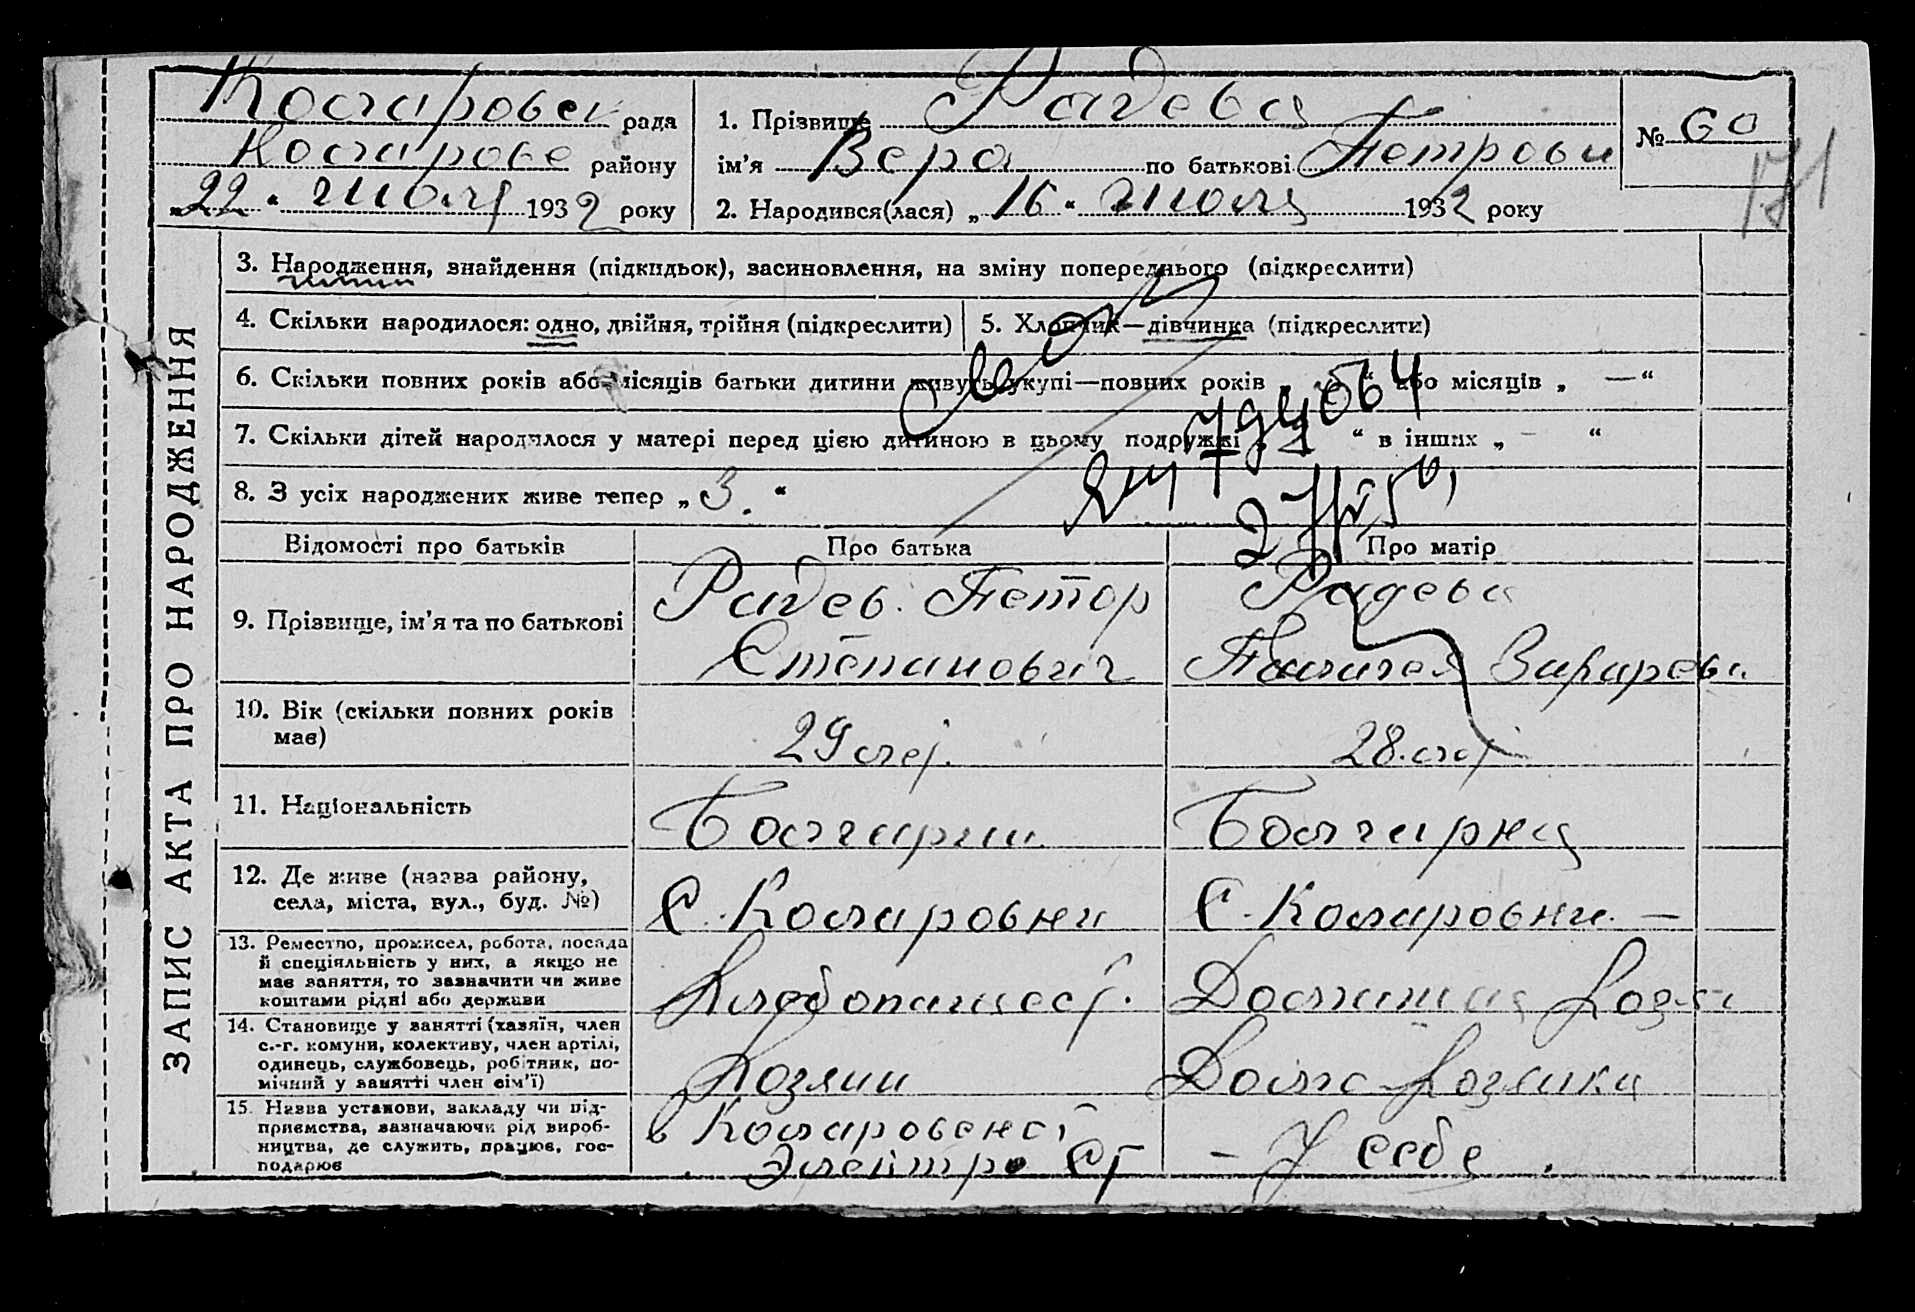 ЗАПИС АКТА ПРО НАРОДЖЕННЯ
Коларовск рада
Коларове району
„22“ июля 1932 року
1. Прізвище Радева
ім’я Вера по батькові Петровн
2. Народився(лася) „16“ июля 1932 року
№ 60
171
3. Народження, знайдення (підкидьок), засиновлення, на зміну попереднього (підкреслити)
4. Скільки народилося: одно, двійня, трійня (підкреслити)
5. Хлопчик—дівчинка (підкреслити)
6. Скільки повних років або місяців батьки дитини живуть укупі—повних років „ “ або місяців „ — “
7. Скільки дітей народилося у матері перед цією дитиною в цьому подружжі „ “ в інших „ - “
8. З усіх народжених живе тепер „ 3. “
Відомості про батьків
Про батька
Про матір
9. Прізвище, ім’я та по батькові
Радев Петор
Степанович
Радева
Захаревн
10. Вік (скільки повних років
має)
29 лет.
28 лет
11. Національність
Болгарин
Болгарка
12. Де живе (назва району,
села, міста, вул., буд. №)
С. Коларовки
С. Коларовки —
13. Ремество, промисел, робота, посада
й спеціяльність у них, а якщо не
має заняття, то зазначити чи живе
коштами рідні або держави
Хлебопашест.
Домашна Хозяй
14. Становище у занятті (хазяїн, член
с.-г. комуни, колективу, член артілі,
одинець, службовець, робітник, по-
мічний у занятті член сім’ї)
Хозяин
Дома Хозяика
15. Назва установи, закладу чи під-
приємства, зазначаючи рід вироб-
ництва, де служить, працює, гос-
подарює
в Коларовской
Электро Ст
- У себе.